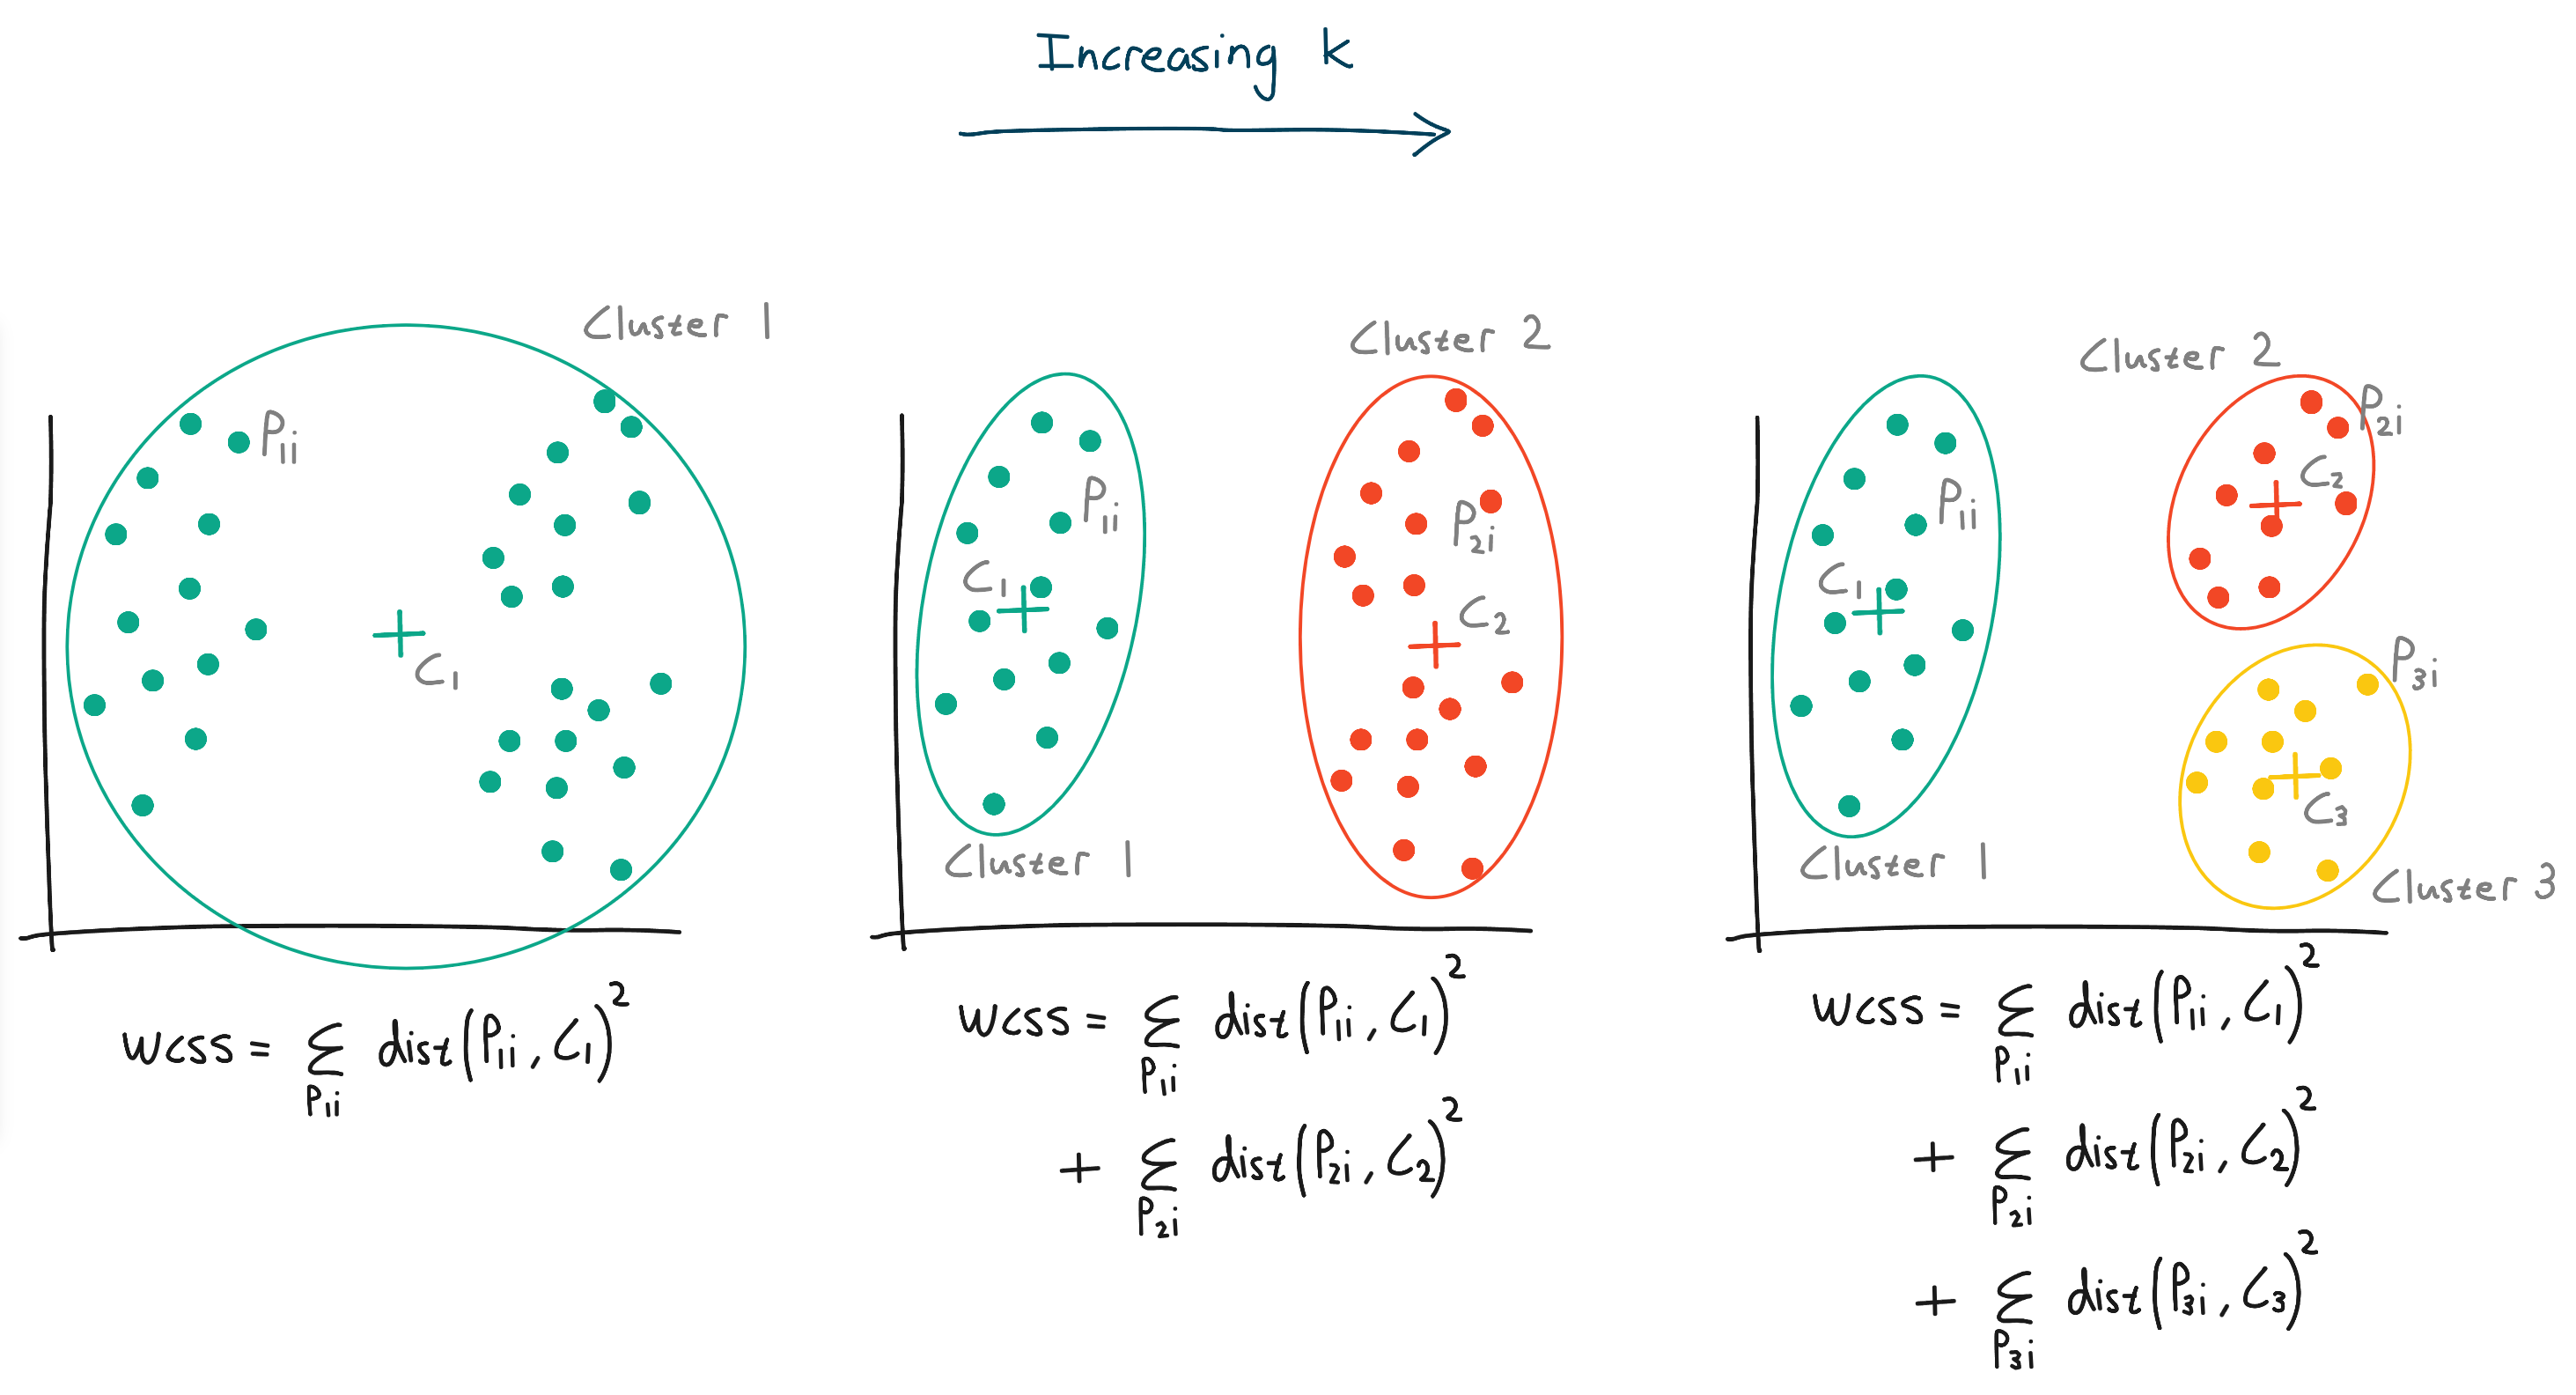 Increasing k
Cluster 1
P1i
C1
WCSS = Σ dist(P1i, C1)²
P1i
Cluster 2
P1i
P2i
C1
C2
Cluster 1
WCSS = Σ dist(P1i, C1)²
P1i
+ Σ dist(P2i, C2)²
P2i
Cluster 2
P2i
C2
P1i
C1
P3i
C3
Cluster 1
Cluster 3
WCSS = Σ dist(P1i, C1)²
P1i
+ Σ dist(P2i, C2)²
P2i
+ Σ dist(P3i, C3)²
P3i